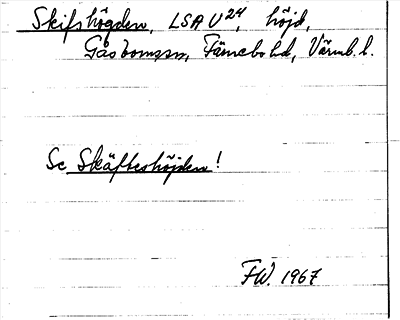 Skifshögden, LSA U24, höjd,
Gåsbornssn, Färnebo hd, Värml. l.
Se Skäfteshöjden!
FW. 1967